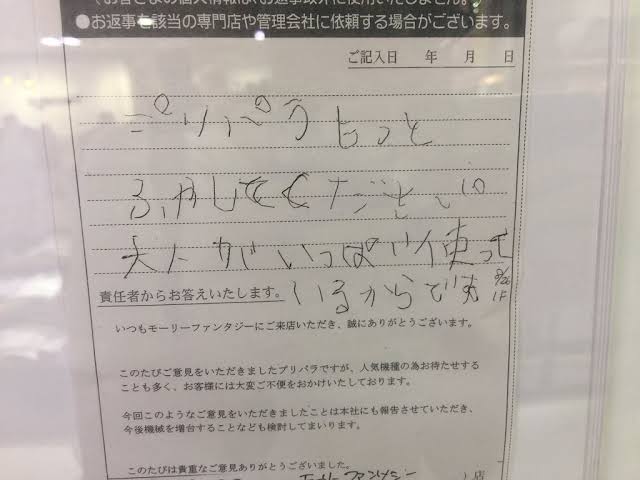 お客さまの個人情報はお返事以外に使用いたしません。
●お返事を該当の専門店や管理会社に依頼する場合がございます。
ご記入日 年 月 日
プリパラもっと
ふやしてください
大人がいっぱい使って
いるからです
8/26
1F
責任者からお答えいたします。
いつもモーリーファンタジーにご来店いただき、誠にありがとうございます。
このたびご意見をいただきましたプリパラですが、人気機種の為お待たせする
ことも多く、お客様には大変ご不便をおかけいたしております。
今回このようなご意見をいただきましたことは本社にも報告させていただき、
今後機械を増台することなども検討してまいります。
このたびは貴重なご意見ありがとうございました。
店